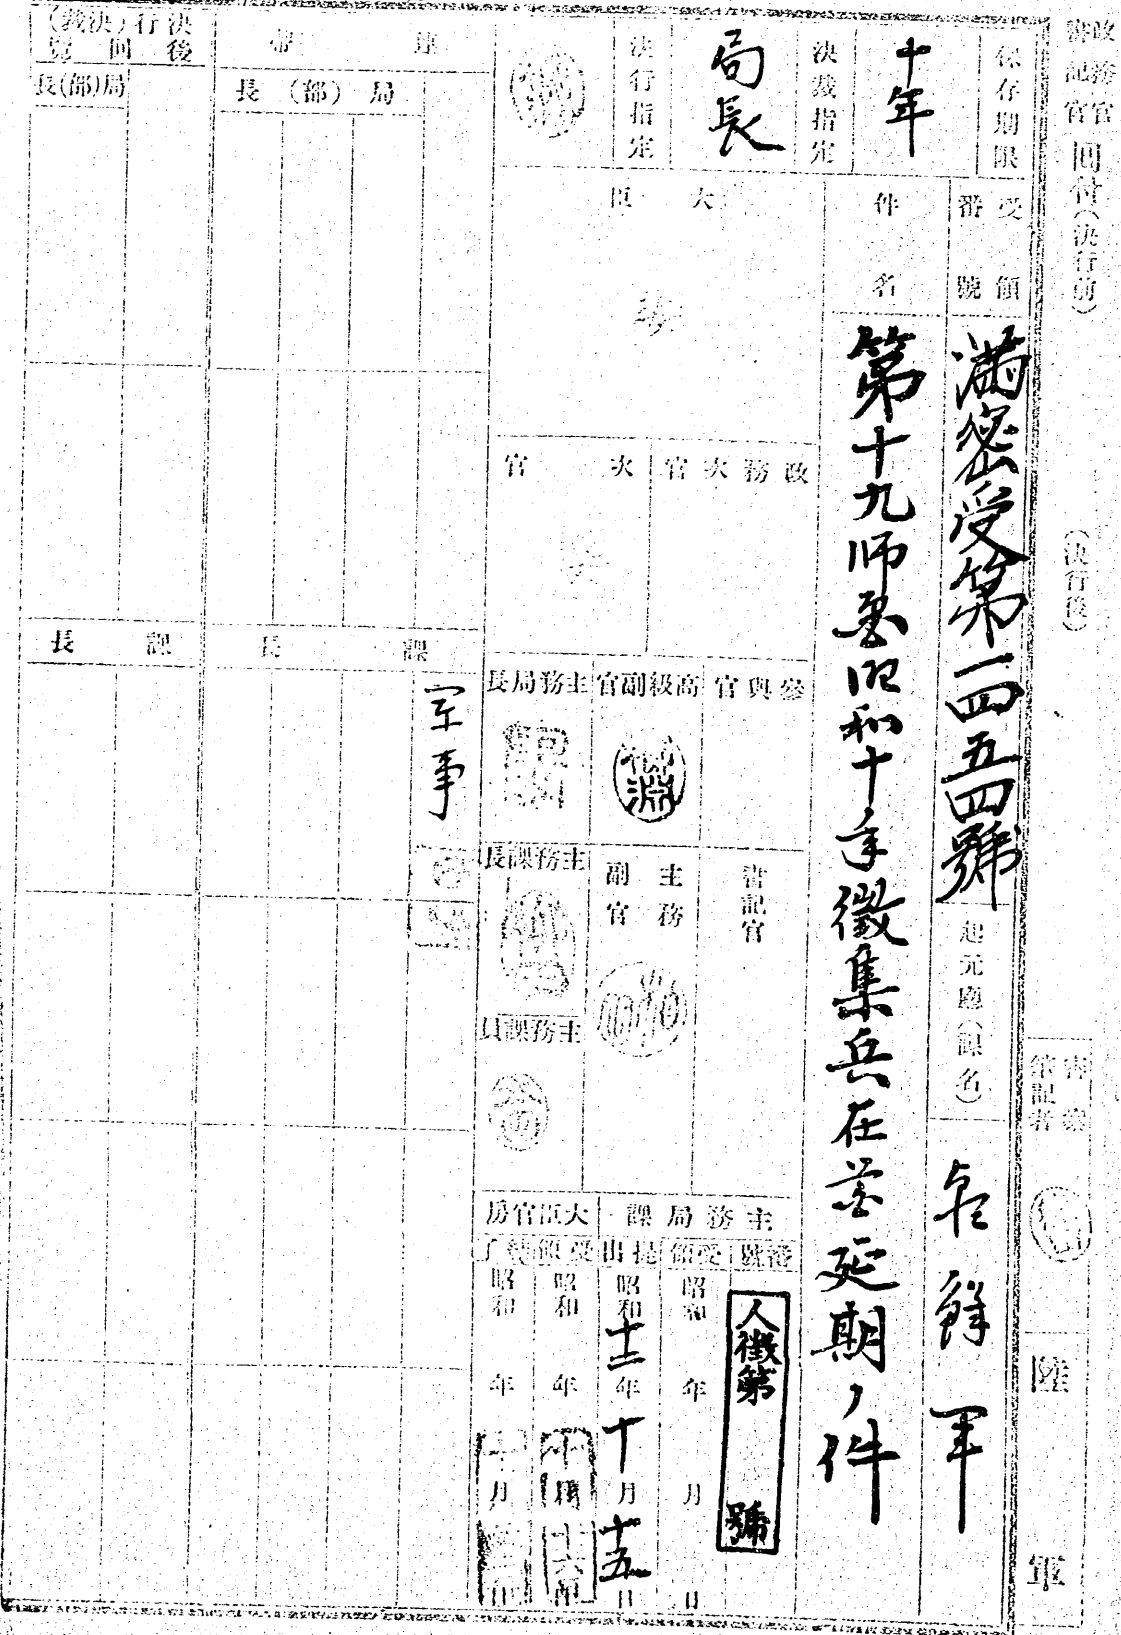 政務官
書記官
回付(決行前)
(決行後)
書記者
陸
軍
保存期限
十年
決裁指定
局長
決行指定
受領番號
滿密受第一四五四號
起元廳(課名)
朝鮮軍
件名
第十九師團昭和十年徵集兵在營延期ノ件
大臣
政務次官
次官
參與官
高級副官
主務局長
書記官
主務副官
主務課長
主務課員
主務局課
大臣官房
番號
人徵第
號
受領
昭和
年
月
日
提出
昭和十二年十月十五日
受領
昭和
年
十月
十六日
結了
昭和
年
月
連帶
局(部)長
課長
軍事
決行(決裁)後回覽
局(部)長
課長